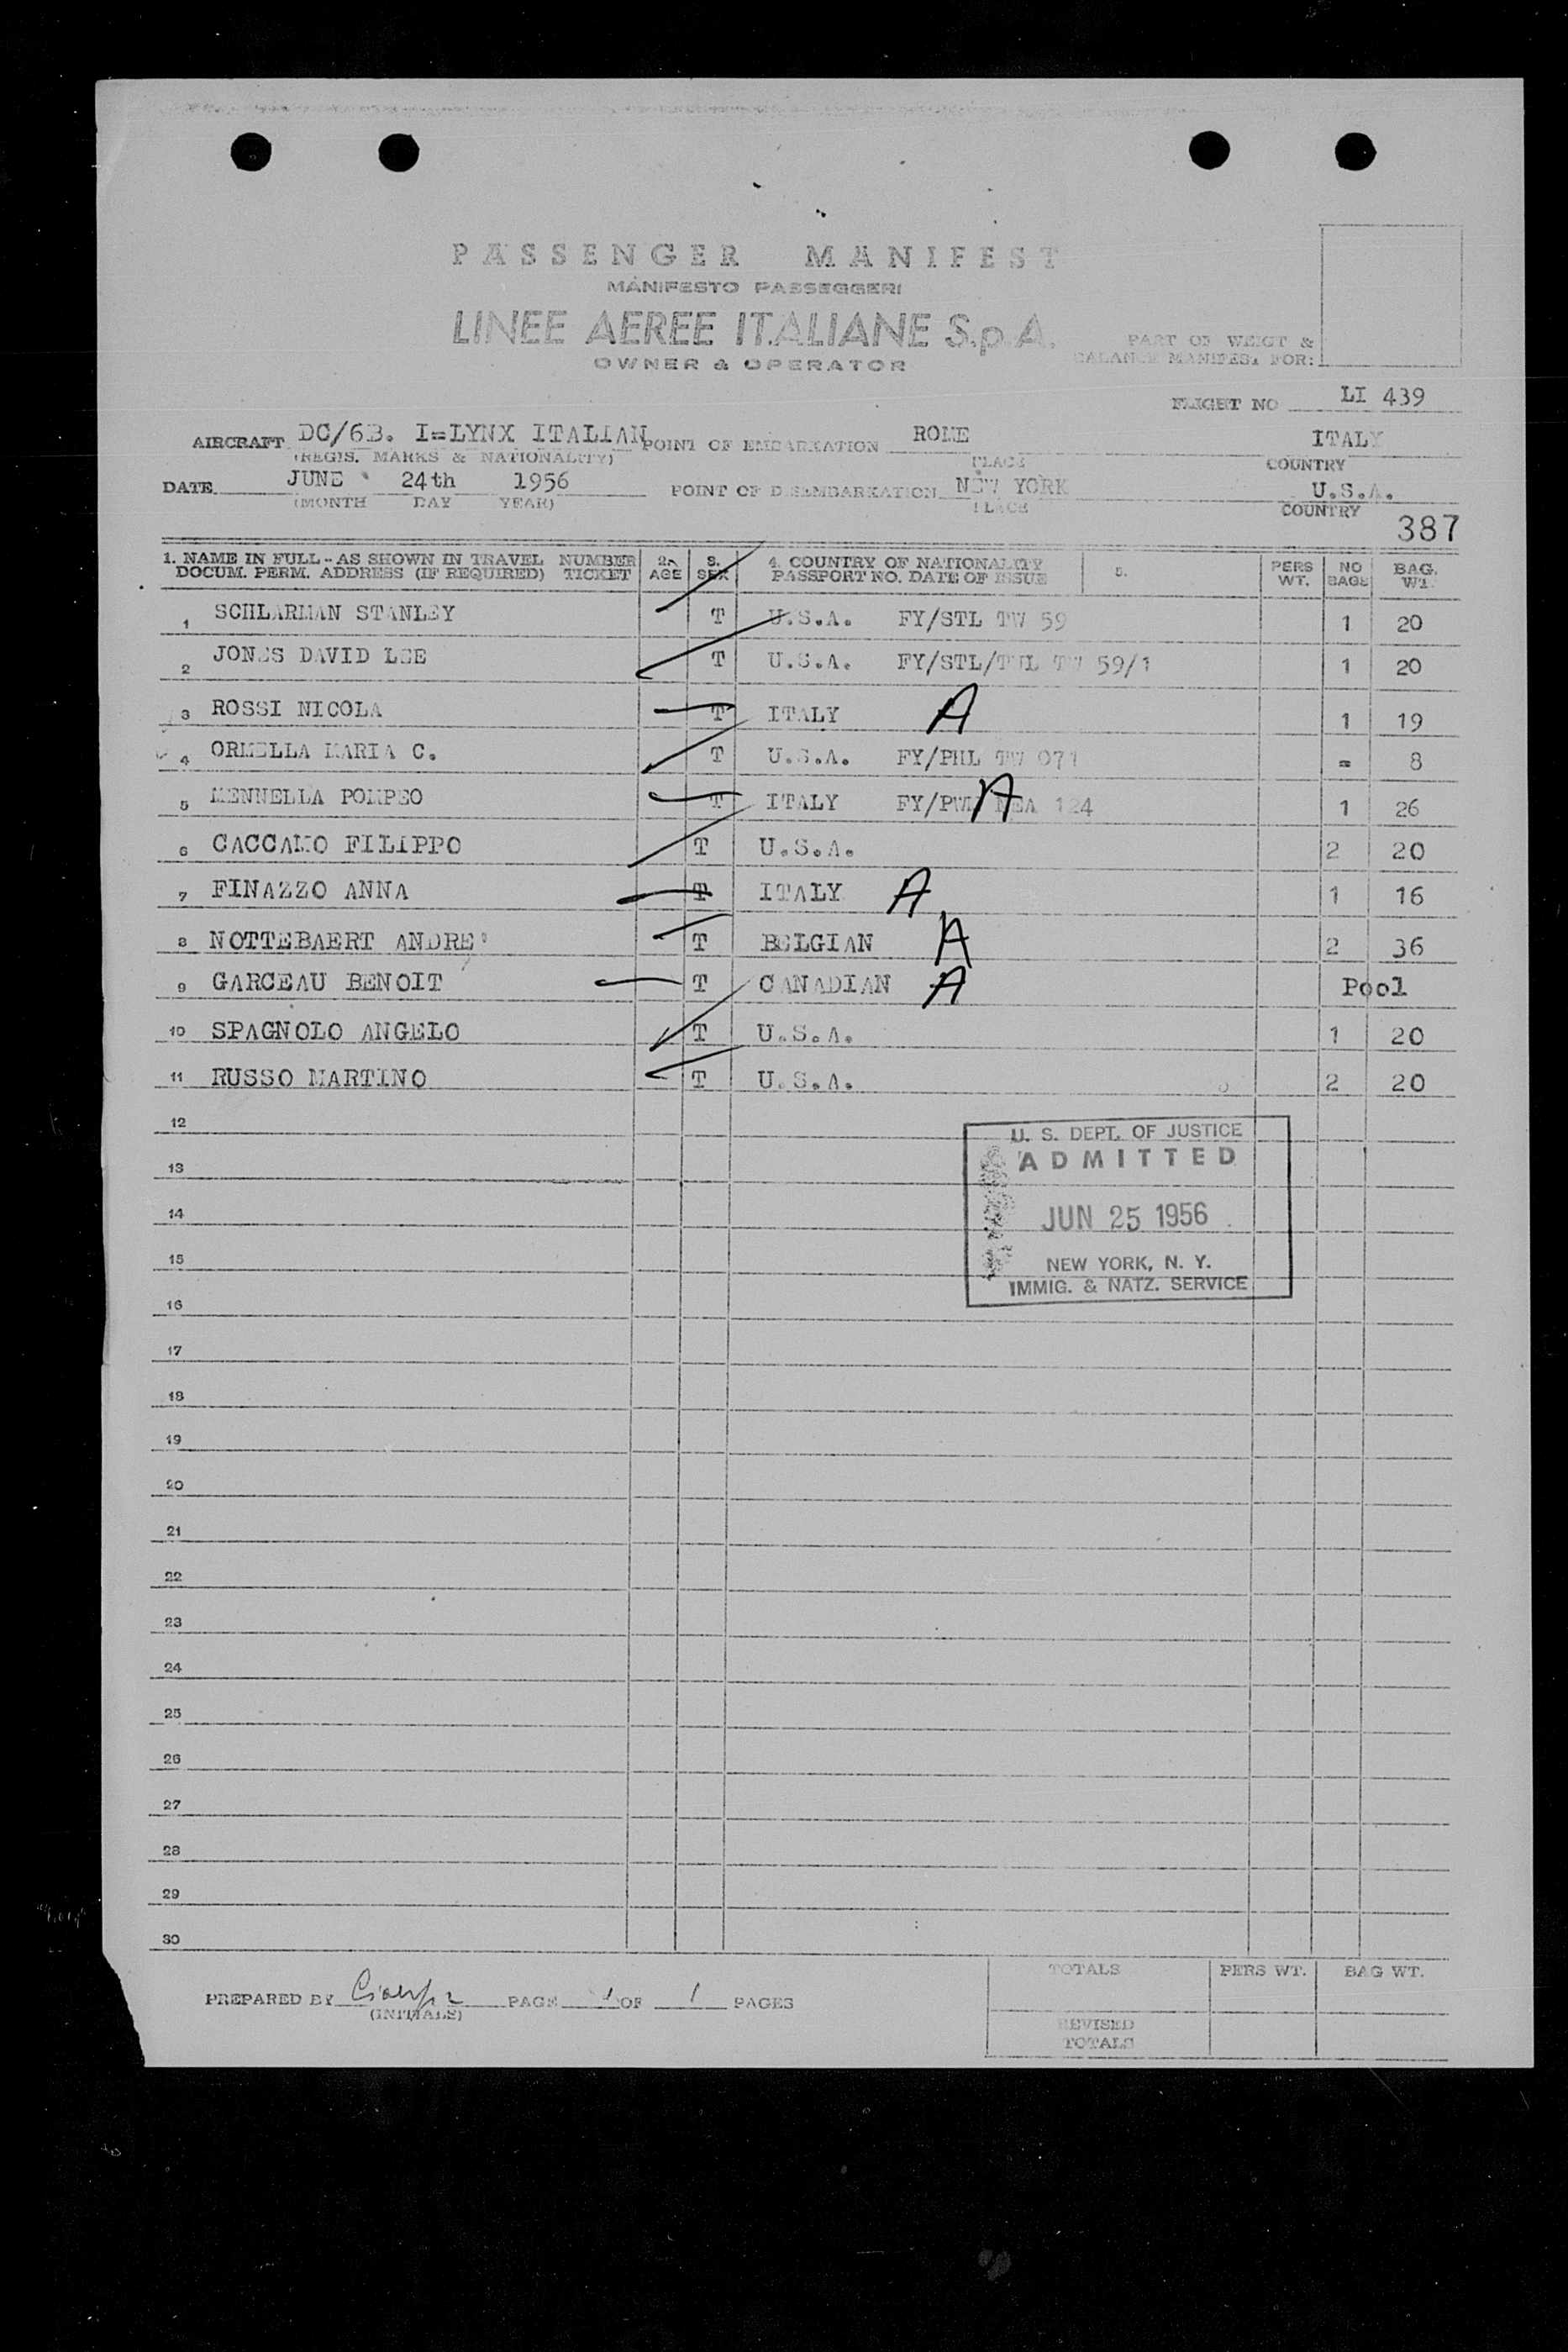 PASSENGER MANIFEST
MANIFESTO PASSEGGERI
LINEE AEREE ITALIANE S.p.A.
OWNER & OPERATOR
PART OF WEIGT &
BALANCE MANIFEST FOR:
FLIGHT NO LI 439
AIRCRAFT DC/6B. I=LYNX ITALIAN POINT OF EMBARKATION ROME ITALY
(REGIS. MARKS & NATIONALITY) PLACE COUNTRY
DATE JUNE 24th 1956 POINT OF DISEMBARKATION NEW YORK U.S.A.
(MONTH DAY YEAR) PLACE COUNTRY
387
1. NAME IN FULL - AS SHOWN IN TRAVEL NUMBER 2. 3. 4. COUNTRY OF NATIONALITY 5. PERS NO BAG.
DOCUM. PERM. ADDRESS (IF REQUIRED) TICKET AGE SEX PASSPORT NO. DATE OF ISSUE WT. BAGS WT.
1 SCHLARMAN STANLEY T U.S.A. FY/STL TW 59 1 20
2 JONES DAVID LEE T U.S.A. FY/STL/TUL TW 59/1 1 20
3 ROSSI NICOLA T ITALY A 1 19
4 ORMELLA MARIA C. T U.S.A. FY/PHL TW 071 = 8
5 MENNELLA POMPEO T ITALY FY/ A 124 1 26
6 CACCAMO FILIPPO T U.S.A. 2 20
7 FINAZZO ANNA T ITALY A 1 16
8 NOTTEBAERT ANDRE' T BELGIAN A 2 36
9 GARCEAU BENOIT T CANADIAN A Pool
10 SPAGNOLO ANGELO T U.S.A. 1 20
11 RUSSO MARTINO T U.S.A. 2 20
12
U. S. DEPT. OF JUSTICE
ADMITTED
13
14
JUN 25 1956
15
NEW YORK, N. Y.
IMMIG. & NATZ. SERVICE
16
17
18
19
20
21
22
23
24
25
26
27
28
29
30
TOTALS PERS WT. BAG WT.
PREPARED BY PAGE 1 OF 1 PAGES
(INITIALS)
REVISED
TOTALS